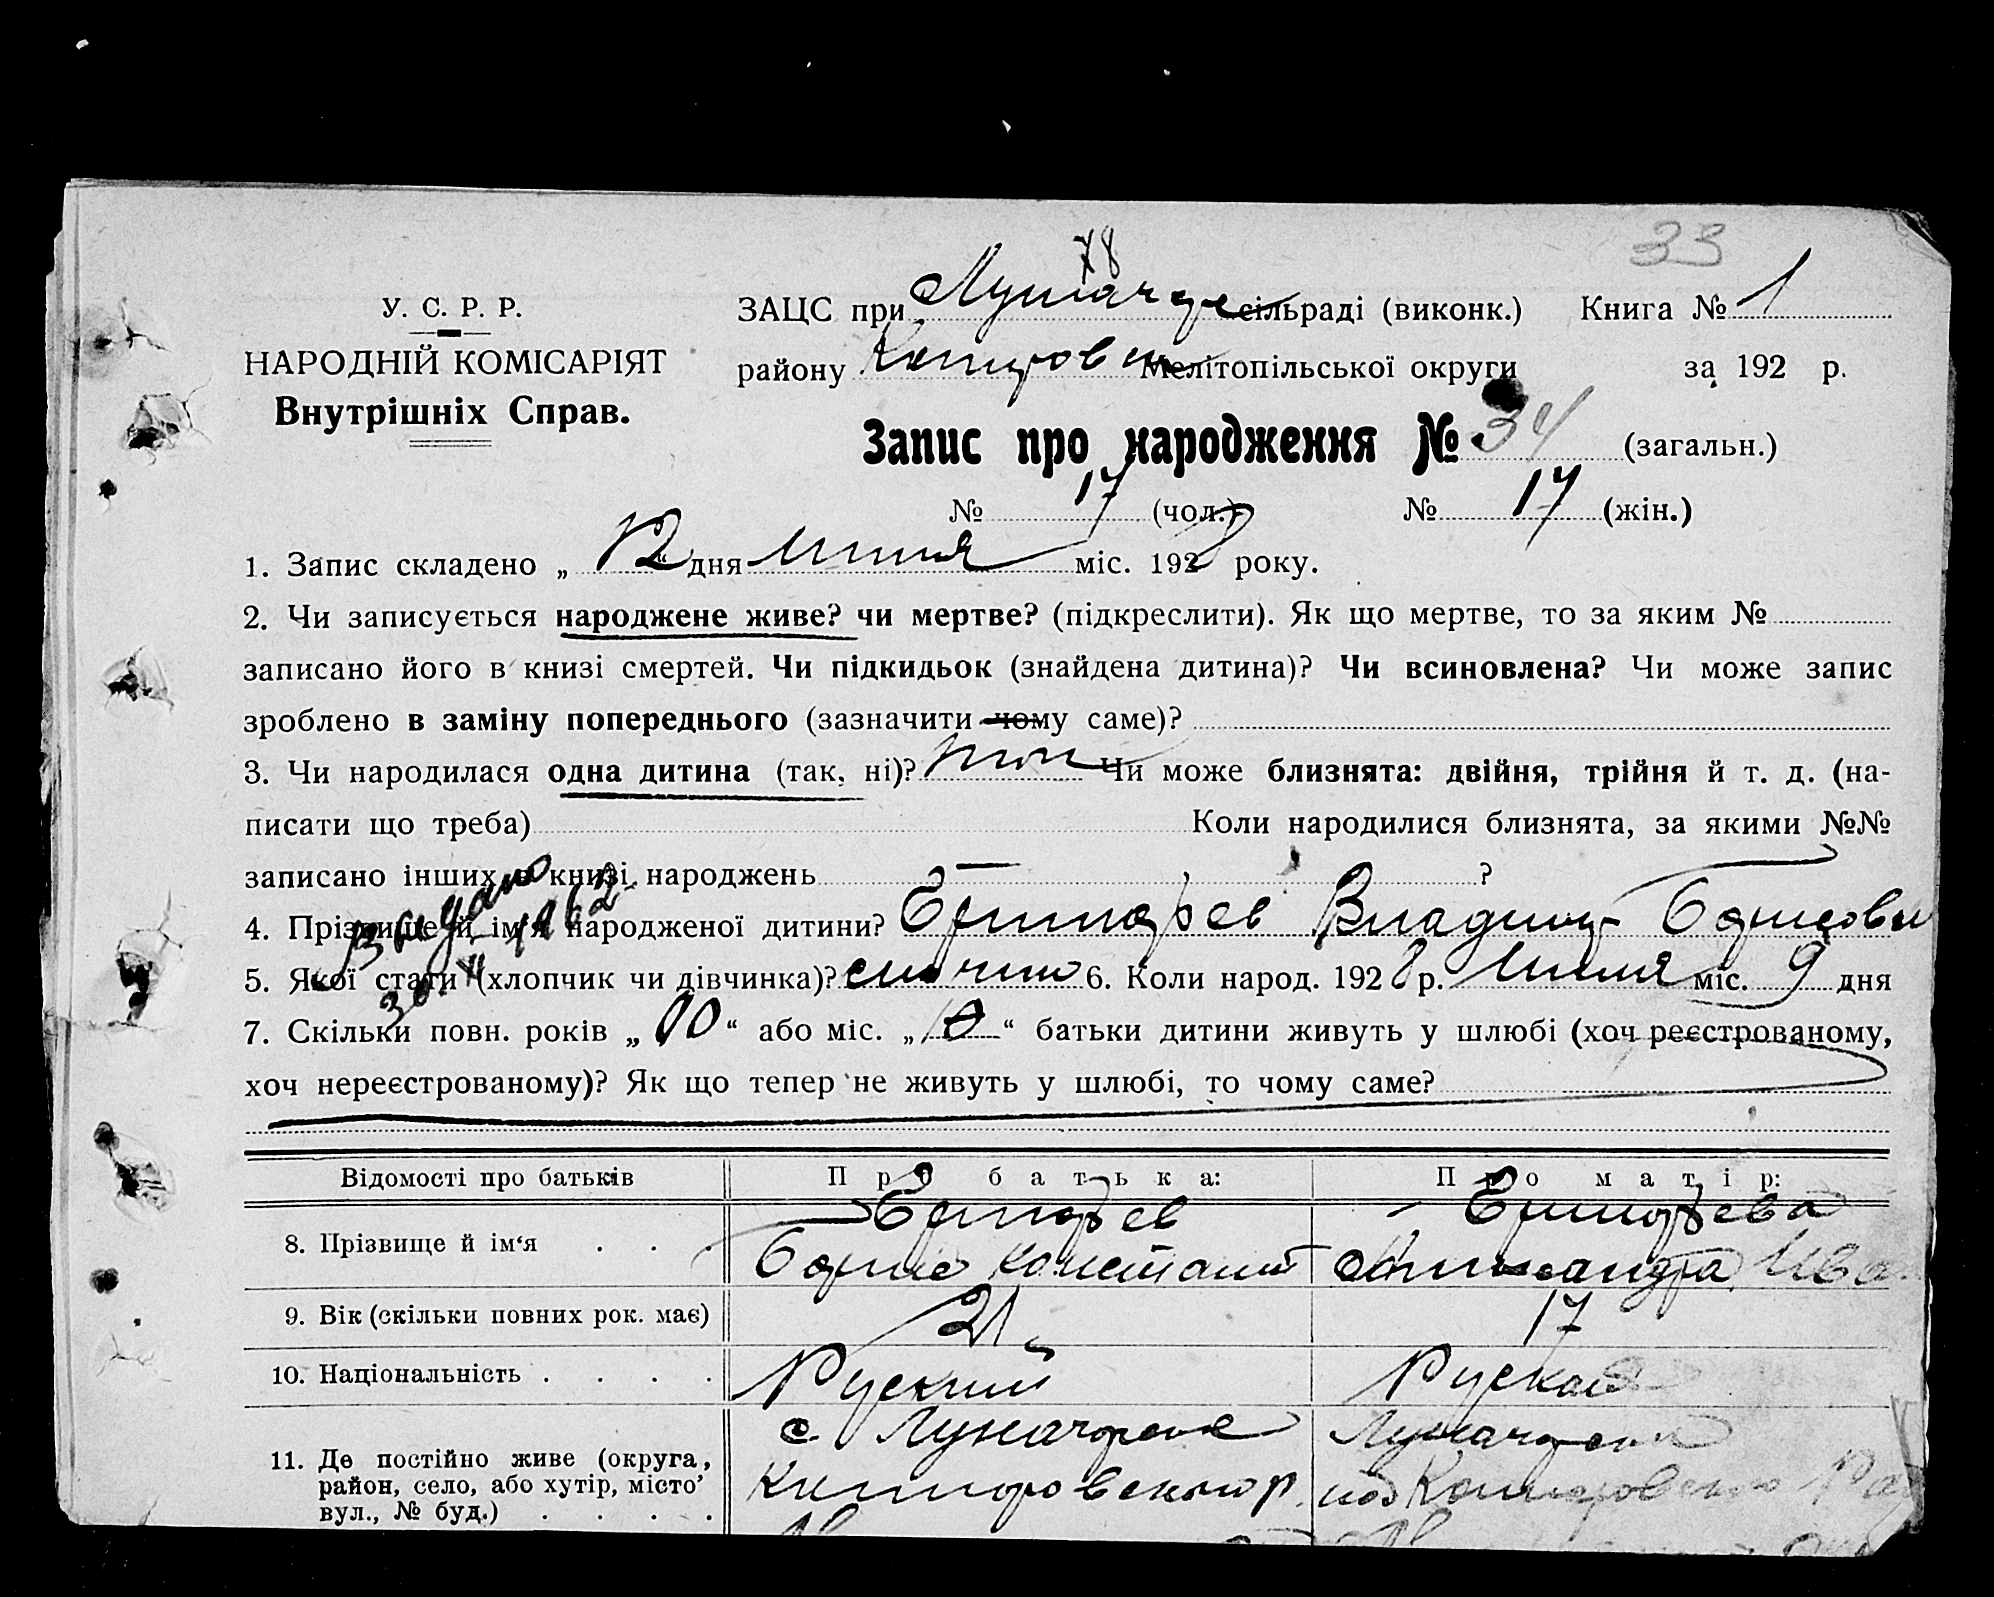 33
78
У. С. Р. Р.
ЗАЦС при сільраді (виконк.) Книга № 1
НАРОДНІЙ КОМІСАРІЯТ
району Мелітопільської округи за 192 р.
Внутрішніх Справ.
Запис про народження № 34 (загальн.)
№ 17 (чол.) № 17 (жін.)
1. Запис складено „12“ дня міс. 1928 року.
2. Чи записується народжене живе? чи мертве? (підкреслити). Як що мертве, то за яким №
записано його в книзі смертей. Чи підкидьок (знайдена дитина)? Чи всиновлена? Чи може запис
зроблено в заміну попереднього (зазначити чому саме)?
3. Чи народилася одна дитина (так, ні)? Чи може близнята: двійня, трійня й т. д. (на-
писати що треба) Коли народилися близнята, за якими №№
записано інших в книзі народжень ?
Выдано
1962
4. Прізвище й ім'я народженої дитини? Владимир Борисович
5. Якої стати (хлопчик чи дівчинка)? 6. Коли народ. 1928 р. міс. 9 дня
7. Скільки повн. років „00“ або міс. „10“ батьки дитини живуть у шлюбі (хоч реєстрованому,
хоч нереєстрованому)? Як що тепер не живуть у шлюбі, то чому саме?
Відомості про батьків Про батька: Про матір:
8. Прізвище й ім'я . . . Борис Констант Александра Ива
9. Вік (скільки повних рок. має) 21 17
10. Національність . . . . Руский Руская
11. Де постійно живе (округа,
район, село, або хутір, місто
вул., № буд.) . . . .
с.